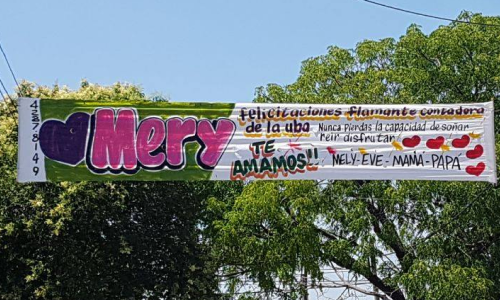 Mery
felicitaciones flamante contadora
de la uba
Nunca pierdas la capacidad de soñar
reir disfrutar
TE
AMAMOS!!
NELY-EVE-MAMÁ-PAPÁ